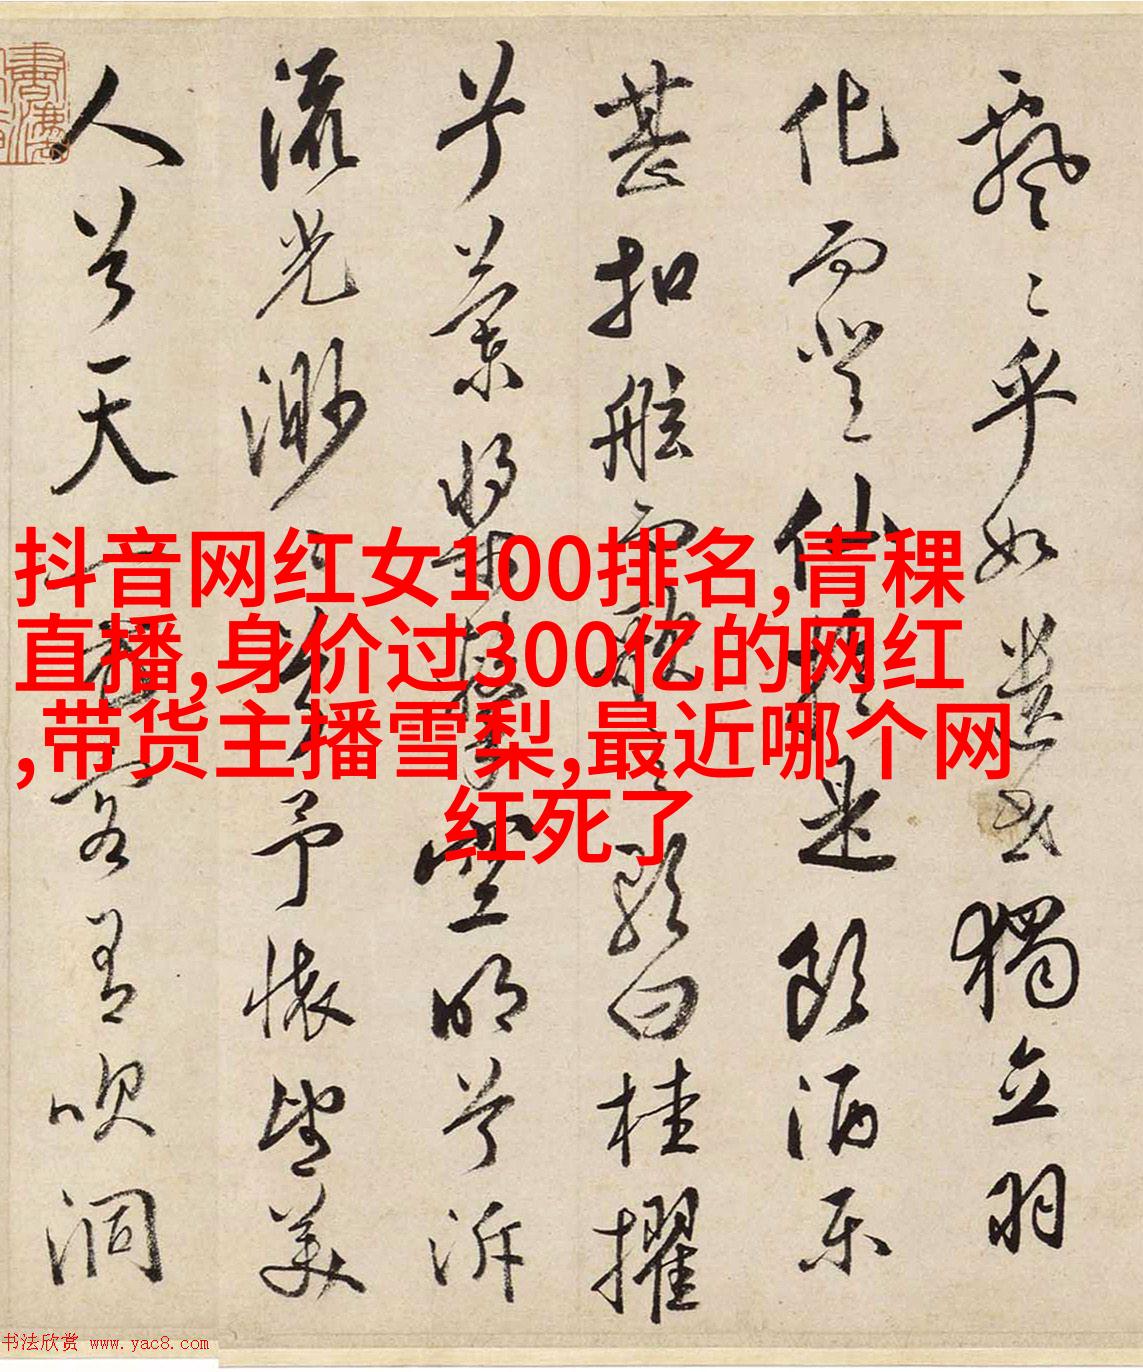 飘〻乎如遗世獨立羽
化而登仙於是飲酒乐
甚扣舷而歌之歌曰桂擢
兮蘭槳擊空明兮泝
流光渺〻兮予懷望美
人兮天一方客有吹洞
抖音网红女100排名,青稞
直播,身价过300亿的网红
,带货主播雪梨,最近哪个网
红死了
书法欣赏 www.yac8.com